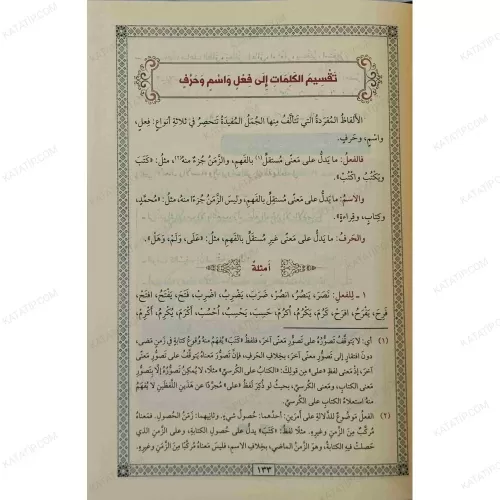 تَقْسِيمُ الكَلِمَاتِ إِلَى فِعْلٍ وَاسْمٍ وَحَرْفٍ
الألفاظُ المُفْرَدَةُ الَّتي تَتَأَلَّفُ مِنها الجُمَلُ المُفِيدَةُ تَنْحَصِرُ في ثَلاثةِ أنواعٍ: فِعلٍ،
واسْمٍ، وحَرفٍ.
فالفعلُ: ما يَدُلُّ على مَعْنًى مُستَقِلٍّ(١) بالفَهمِ، والزَّمَنُ جُزءٌ منهُ(٢)، مثلُ: «كَتَبَ
وَيَكْتُبُ واكْتُبْ».
والاسمُ: ما يَدُلُّ على مَعْنًى مُستَقِلٍّ بالفَهمِ، وليسَ الزَّمَنُ جُزءًا منهُ، مثلُ: «مُحمَّدٍ،
وكِتابٍ، وقِراءةٍ».
والحَرفُ: ما يَدُلُّ على مَعْنًى غيرِ مُستَقِلٍّ بالفَهمِ، مثلُ: «عَلَى، وَلَمْ، وَهَلْ».
أمثلةٌ
١ ـ لِلفعلِ: نَصَرَ، يَنْصُرُ، انْصُرْ، ضَرَبَ، يَضْرِبُ، اضْرِبْ، فَتَحَ، يَفْتَحُ، افتَحْ،
فَرِحَ، يَفْرَحُ، افرَحْ، كَرُمَ، يَكْرُمُ، اُكْرُمْ، حَسِبَ، يَحْسِبُ، اُحْسُبْ، أَكْرَمَ، يُكْرِمُ، أَكْرِمْ،
(١) أي: لا يَتوقَّفُ تَصوُّرُهُ على تَصوُّرِ مَعنًى آخرَ، فلفظُ «كَتَبَ» يُفهَمُ منهُ وُقوعُ كتابةٍ في زَمنٍ مضى،
دونَ افتقارٍ إلى تَصوُّرِ مَعنًى آخرَ، بخلافِ الحرفِ، فإنَّ تَصوُّرَ مَعناهُ يَتوقَّفُ على تَصوُّرِ مَعنًى
آخرَ، إذْ مَعنى «على» مِن قولِكَ: «الكتابُ على الكُرسيِّ» مثلًا، لا يُمكنُ تَصوُّرُهُ إلَّا بتَصوُّرِ
معنى الكتابِ، ومَعنى الكُرسيِّ، بحيثُ لو ذُكِرَ لَفظُ «على» مُجرَّدًا عن هَذينِ اللَّفظَينِ لا يُفهَمُ
منهُ استعلاءُ الكتابِ على الكُرسيِّ.
(٢) الفعلُ موضوعٌ للدَّلالةِ على أمرَينِ: أحدُهما: حُصولُ شيءٍ. وثانيهما: زَمَنُ الحُصولِ. فمعناهُ
مُركَّبٌ مِنَ الزَّمنِ وغيرِهِ. مثلًا لفظُ: «كَتَبَ» يدلُّ على حُصولِ الكتابةِ، وعلى الزَّمنِ الذي
حَصَلتْ فيهِ الكتابةُ، وهو الزَّمنُ الماضي، بخلافِ الاسمِ، فليسَ معناهُ مُركَّبًا مِنَ الزَّمنِ وغيرِهِ.
١٣٣
KATATIP.COM